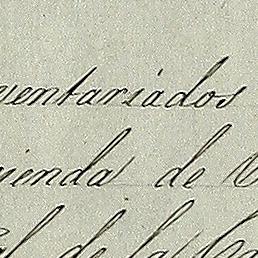 ventariados
ienda de
de la